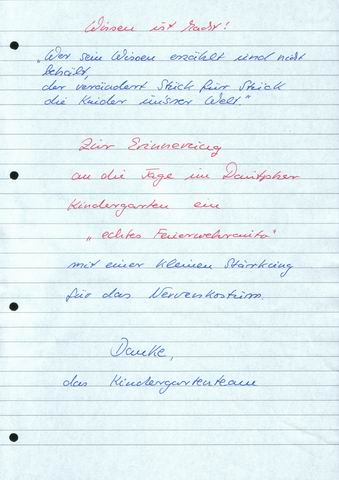 Wissen ist Macht!
„Wer sein Wissen erzählt und nicht
behält,
der verändert Stück für Stück
die Kinder unsrer Welt.“
Zur Erinnerung
an die Tage im
Kindergarten ein
„echtes Feuerwehrauto“
mit einer kleinen Stärkung
für das Nervenkostüm.
Danke,
das Kindergartenteam